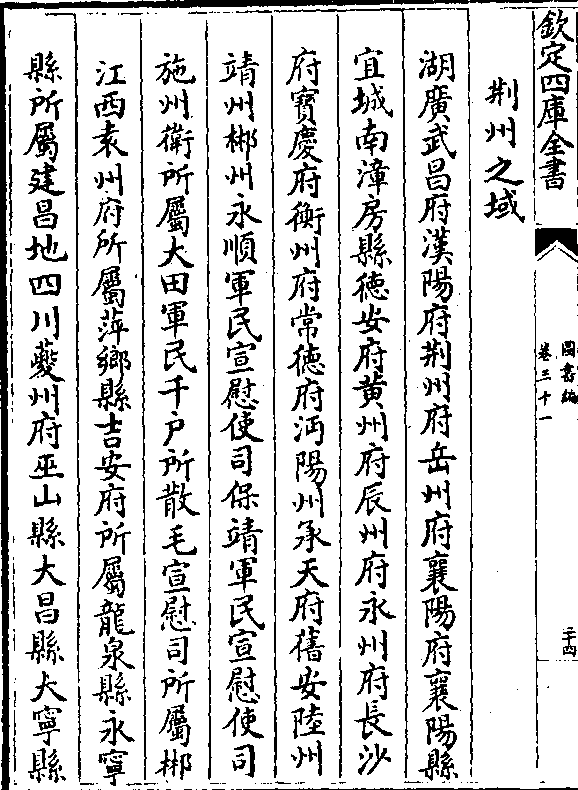 欽定四庫全書
圖書編
卷三十一
二十四
荆州之域
湖廣武昌府漢陽府荆州府岳州府襄陽府襄陽縣
宜城南漳房縣徳安府黄州府辰州府永州府長沙
府寳慶府衡州府常徳府沔陽州承天府舊安陸州
靖州郴州永順軍民宣慰使司保靖軍民宣慰使司
施州衛所屬大田軍民千户所散毛宣慰司所屬郴
江西袁州府所屬萍鄉縣吉安府所屬龍泉縣永寧
縣所屬建昌地四川夔州府巫山縣大昌縣大寧縣